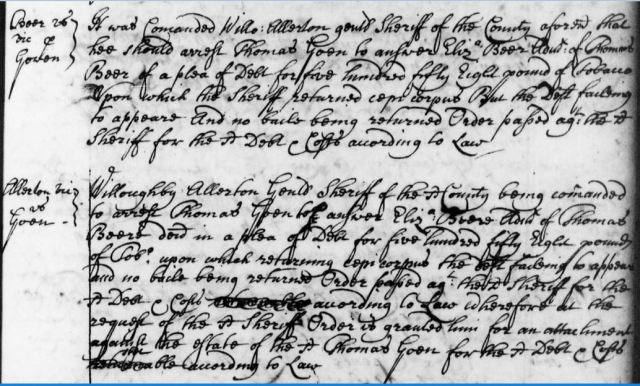 Beer vs
vic p
Gowen
It was Comanded Willo: Allerton gentl Sheriff of the County aforesd that
hee should arrest Thomas Goen to answer Eliza Beer Admx: of Thomas
Beer of a plea of Debt for five hundred fifty Eight pound of Tobacco
Upon which the Sheriff returned cepi corpus But the deft faileing
to appeare And no baile being returned Order passed agt the sd
Sheriff for the sd Debt & Costs according to Law
Allerton vic
vs
Goen
Willoughby Allerton Gentl Sheriff of the sd County being comanded
to arrest Thomas Goen to answer Eliza Beere Admx of Thomas
Beere decd in a plea of Debt for five hundred fifty Eight pounds
of Tobo. upon which returning cepi corpus the deft faileing to appear
and no baile being returned Order passed agt the sd Sheriff for the
sd Debt & Costs according to Law wherefore at the
request of the sd Sheriff Order is granted him for an attachment
against the estate of the sd Thomas Goen for the sd Debt & Costs
returnable according to Law